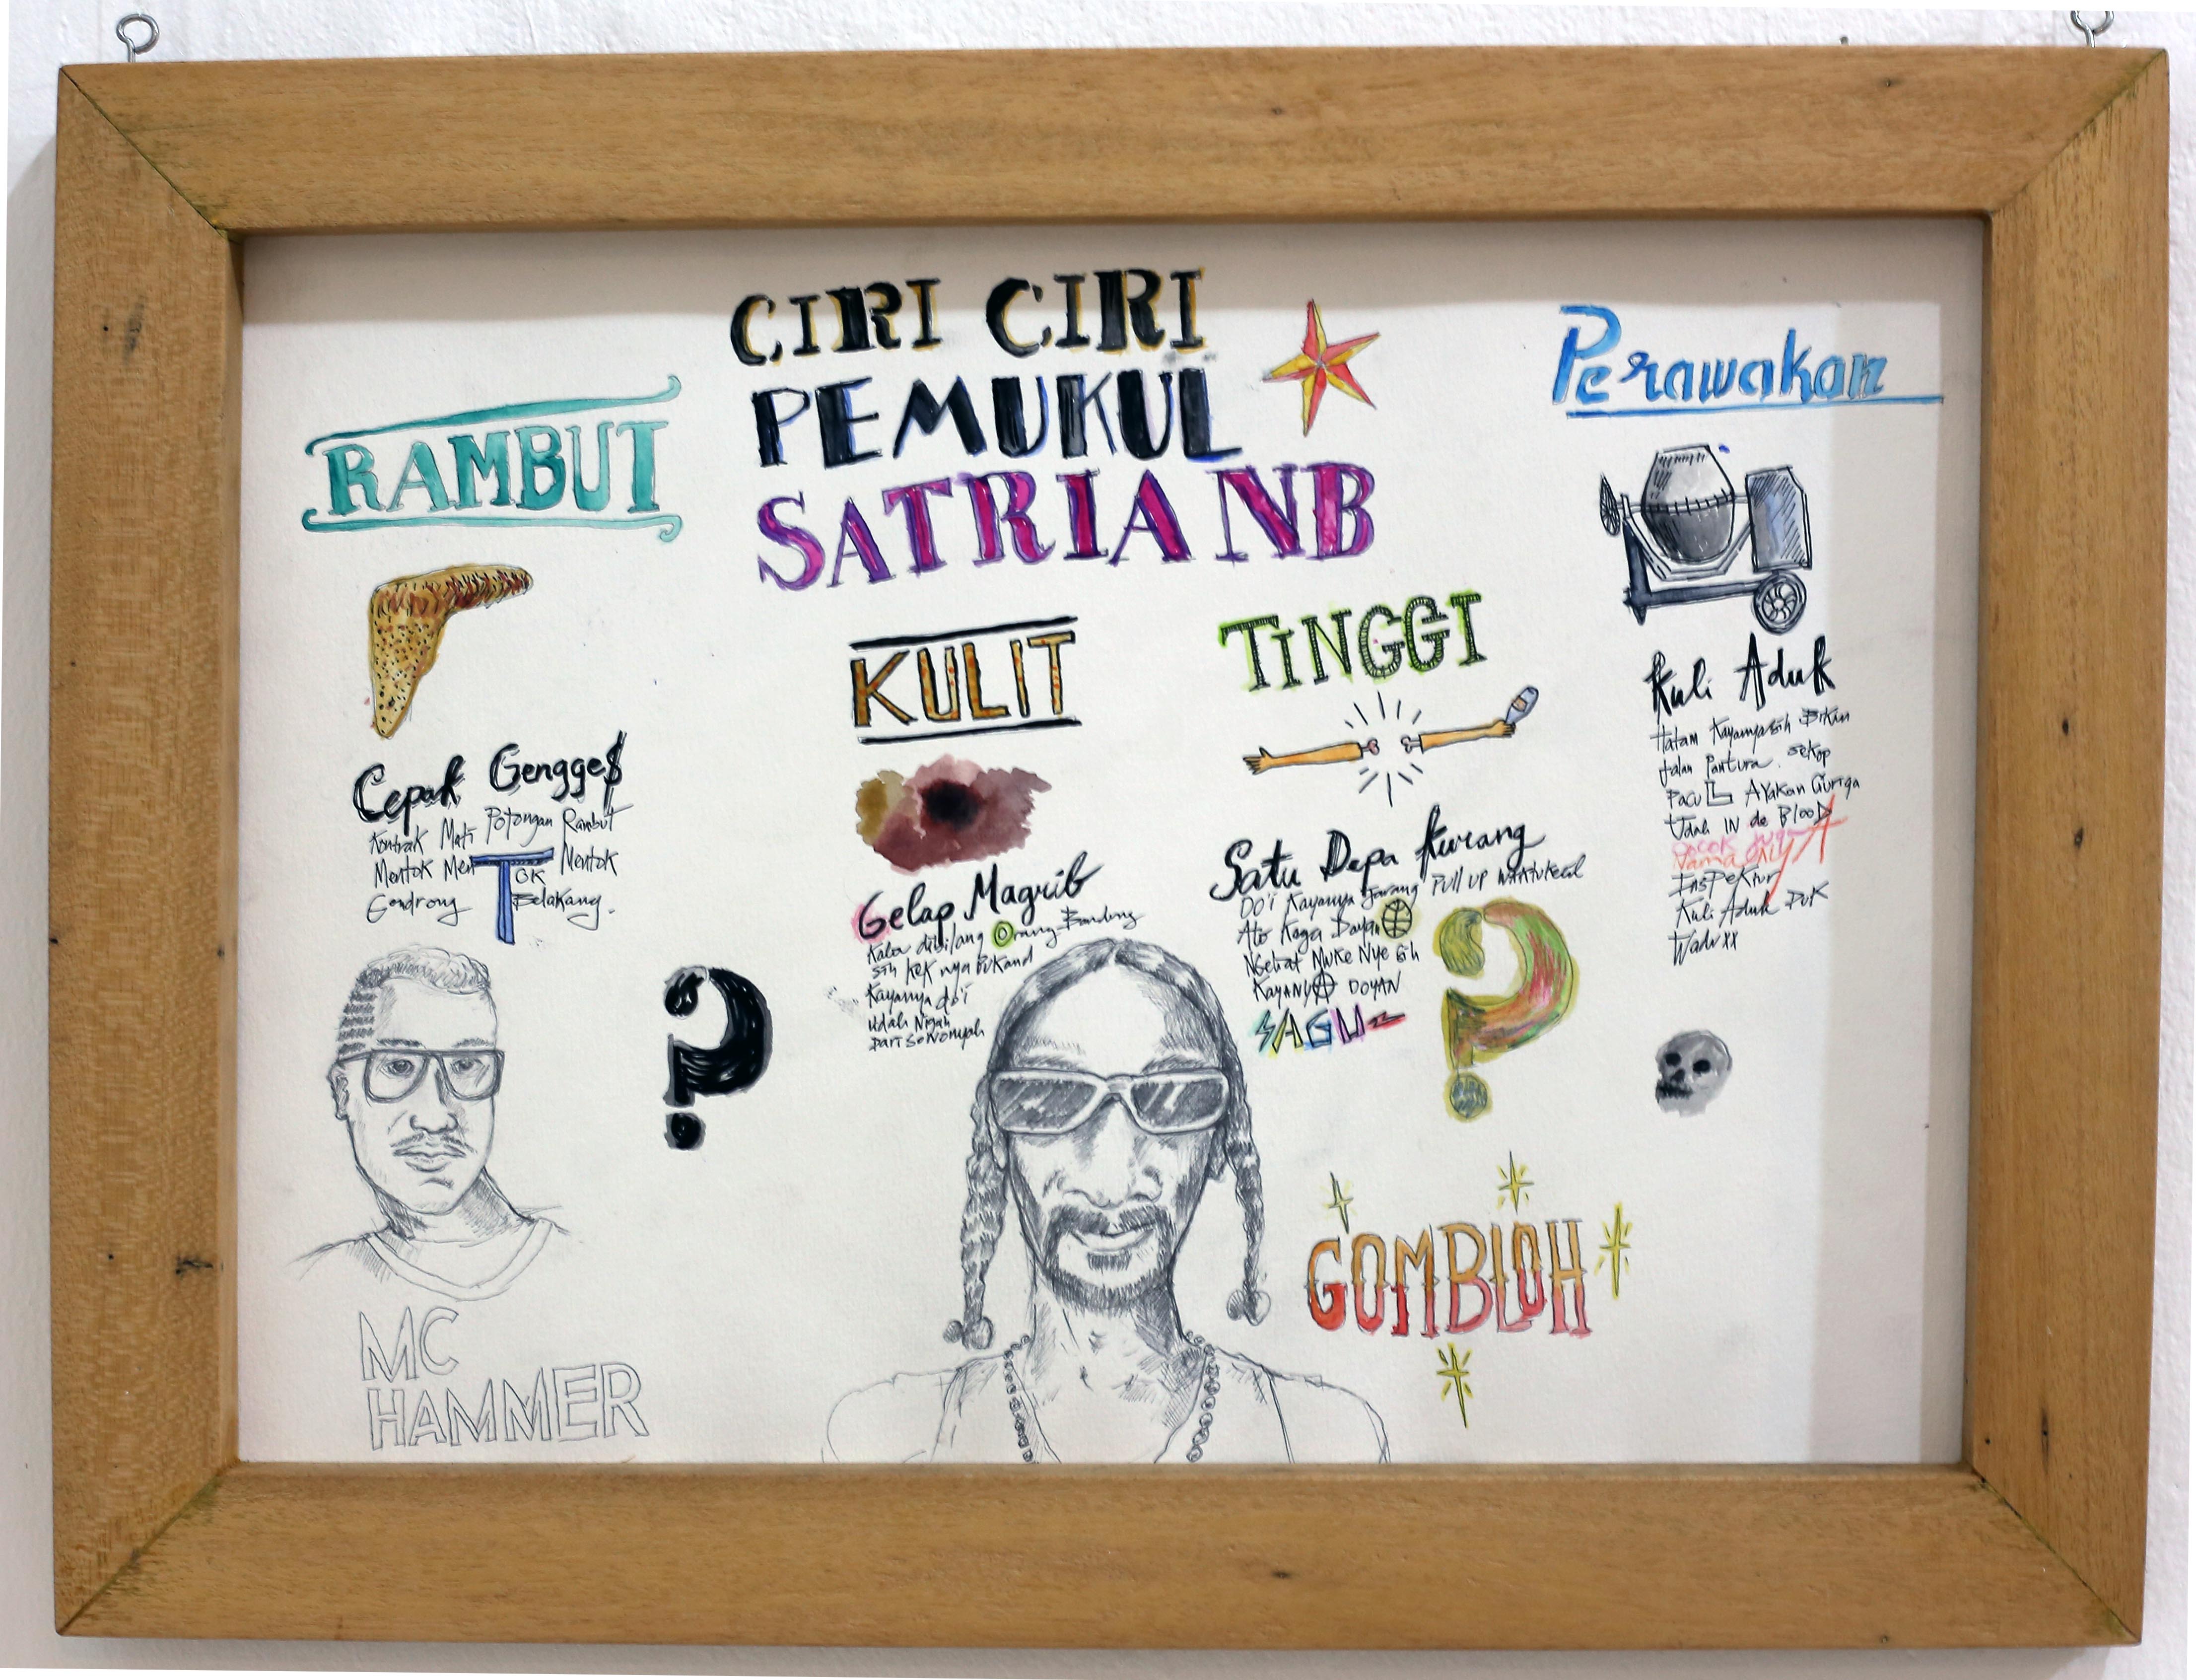 CIRI CIRI
PEMUKUL
SATRIA NB
RAMBUT
Cepak Gengge$
Kontrak Mati Potongan Rambut
Mentok Men T OK Mentok
Gondrong Belakang.
MC
HAMMER
?
KULIT
Gelap Magrib
Kalau dibilang Orang Bandung
sih kek nya Bukand
Kayanya do'i
udah Nigah
Dari
TiNGGI
Satu Depa Kurang
Do'i Kayanya Jarang Pull up waktu kecil
Ato Koga Doyan
Ngeliat Muke Nye Sih
KAYANYA DOYAN
SAGU
?
GOMBLOH
Perawakan
Kuli Aduk
Hatam Kayanya sih Bikin
Jalan Pantura. sekop
Pacul Ayakan Guriga
Udah IN de BlooD
Cocok juga
Nama nyA
Inspektur
Kuli Aduk